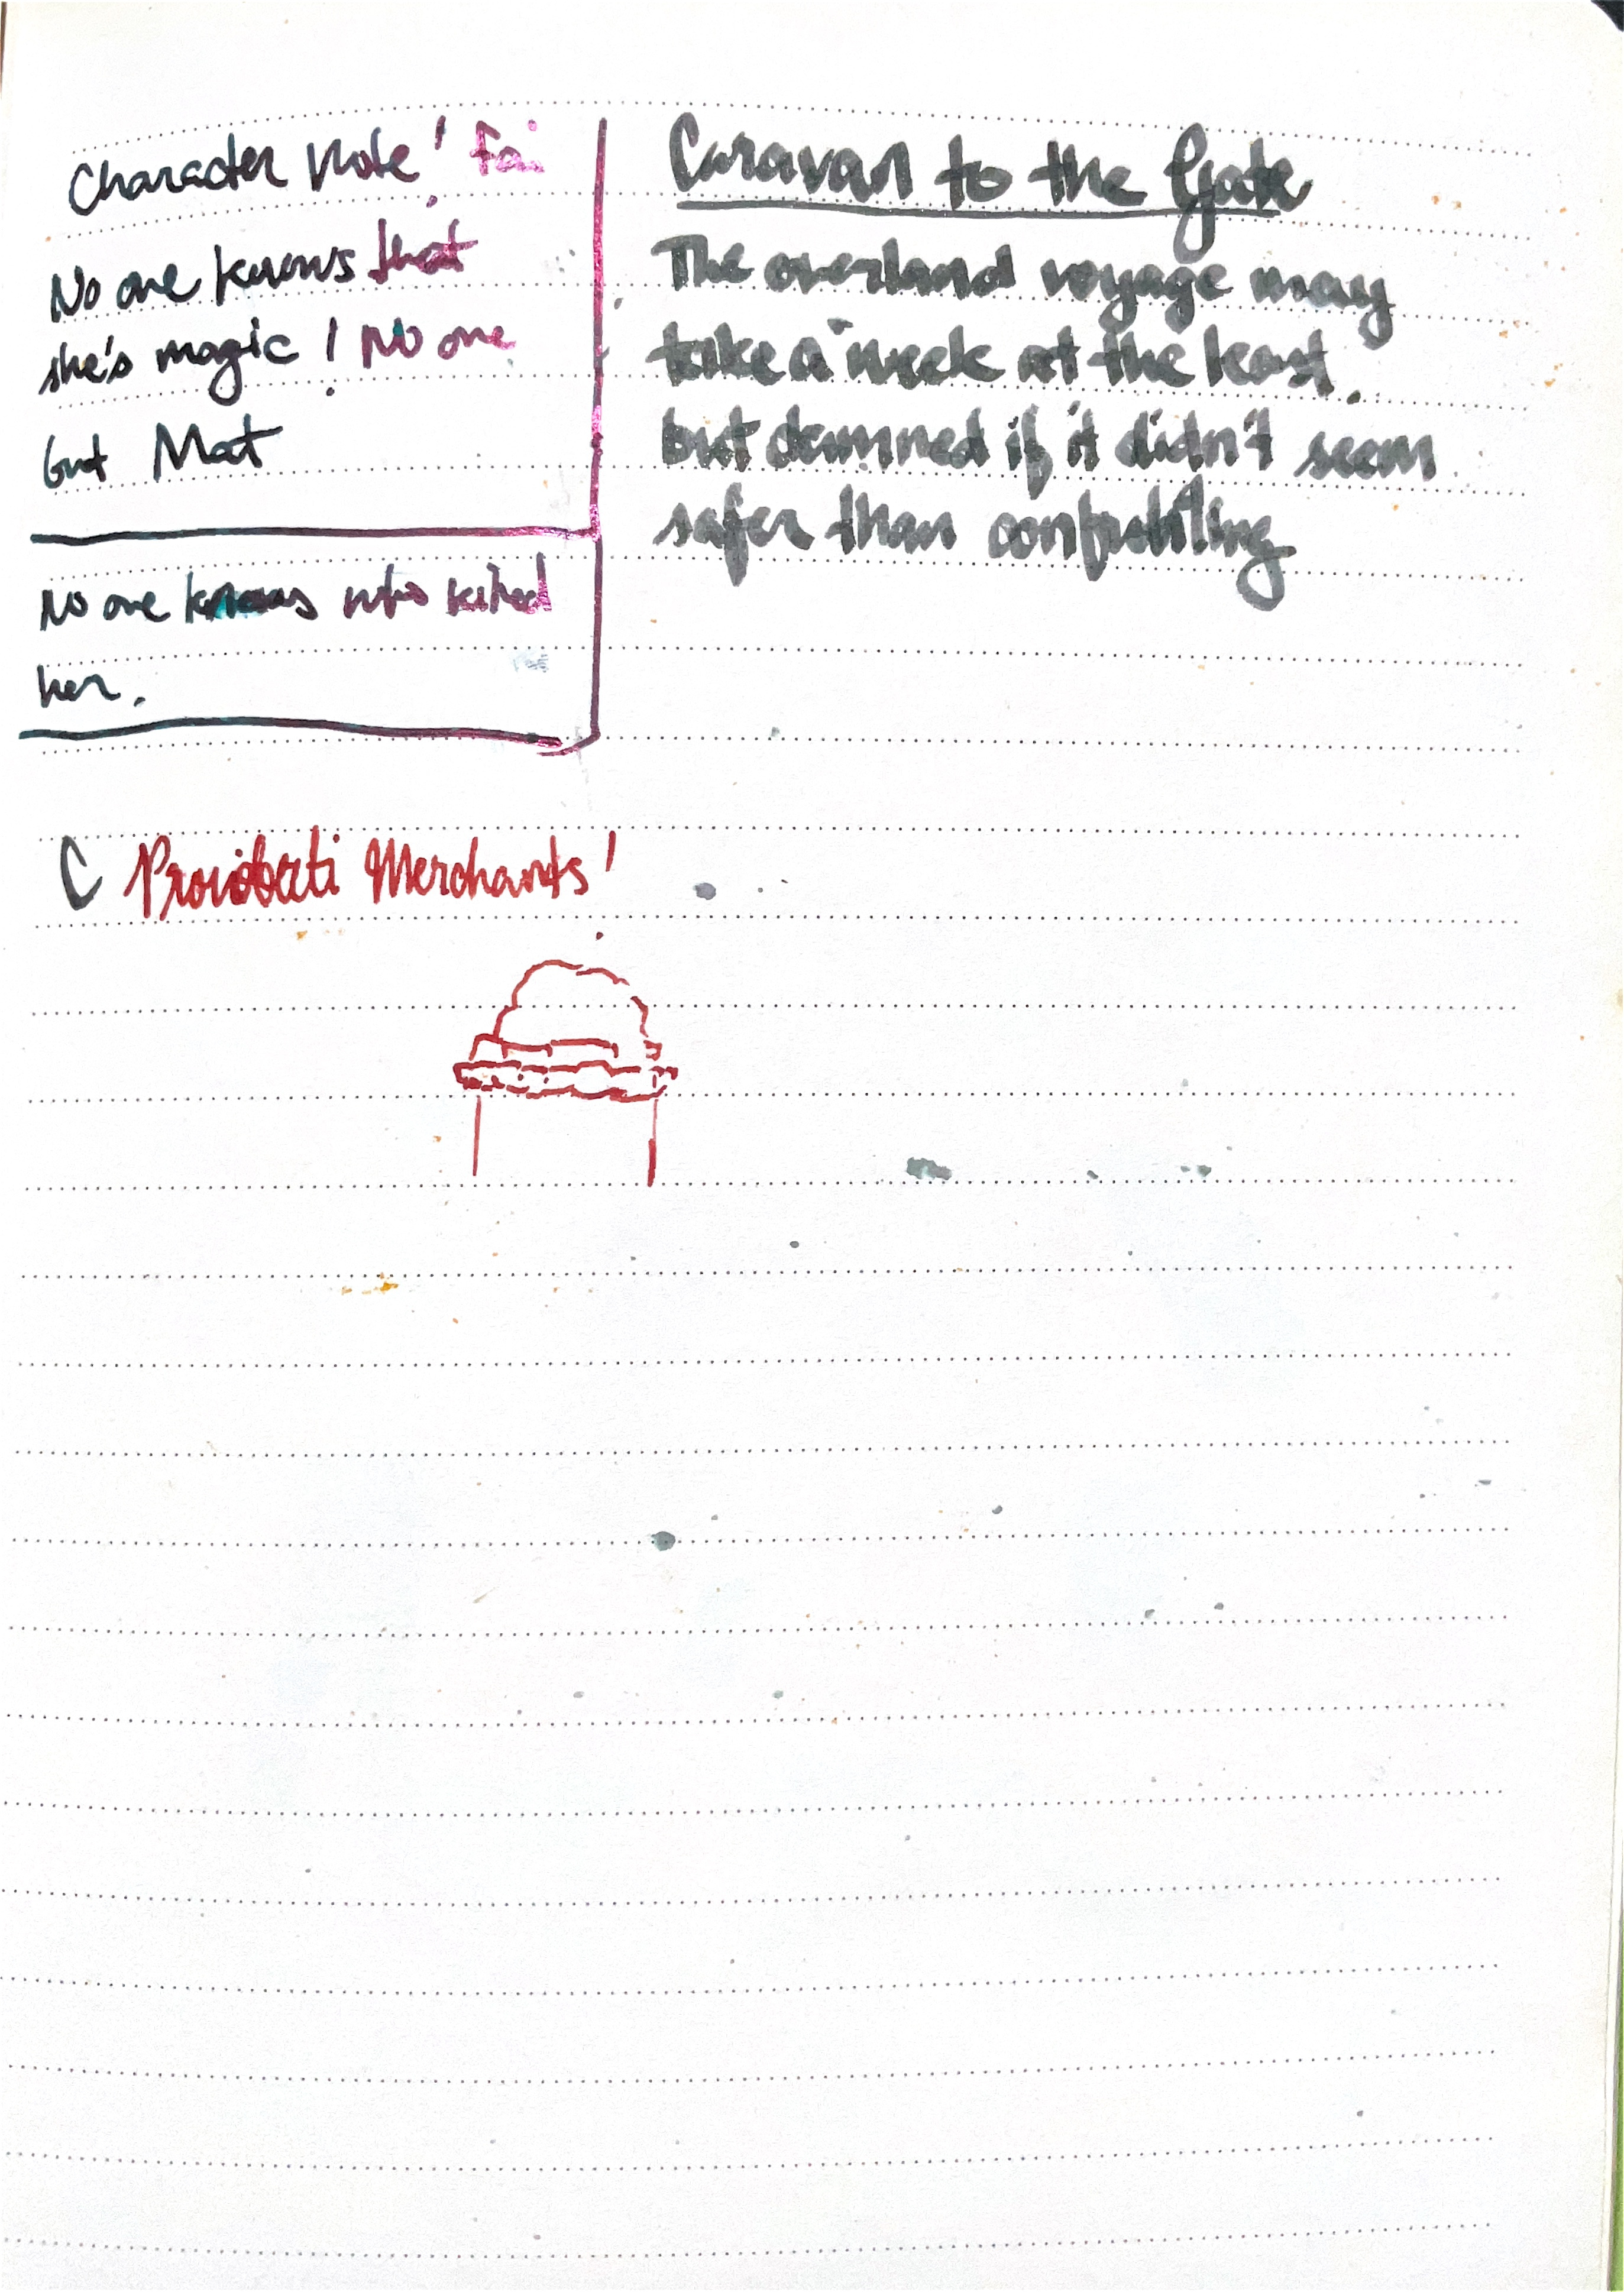 Character Note! Fai
No one knows that
she's magic! No one
but Mat
No one knows who killed
her.
Caravan to the Gate
The overland voyage may
take a week at the least.
but damned if it didn't seem
safer than
C Merchants!